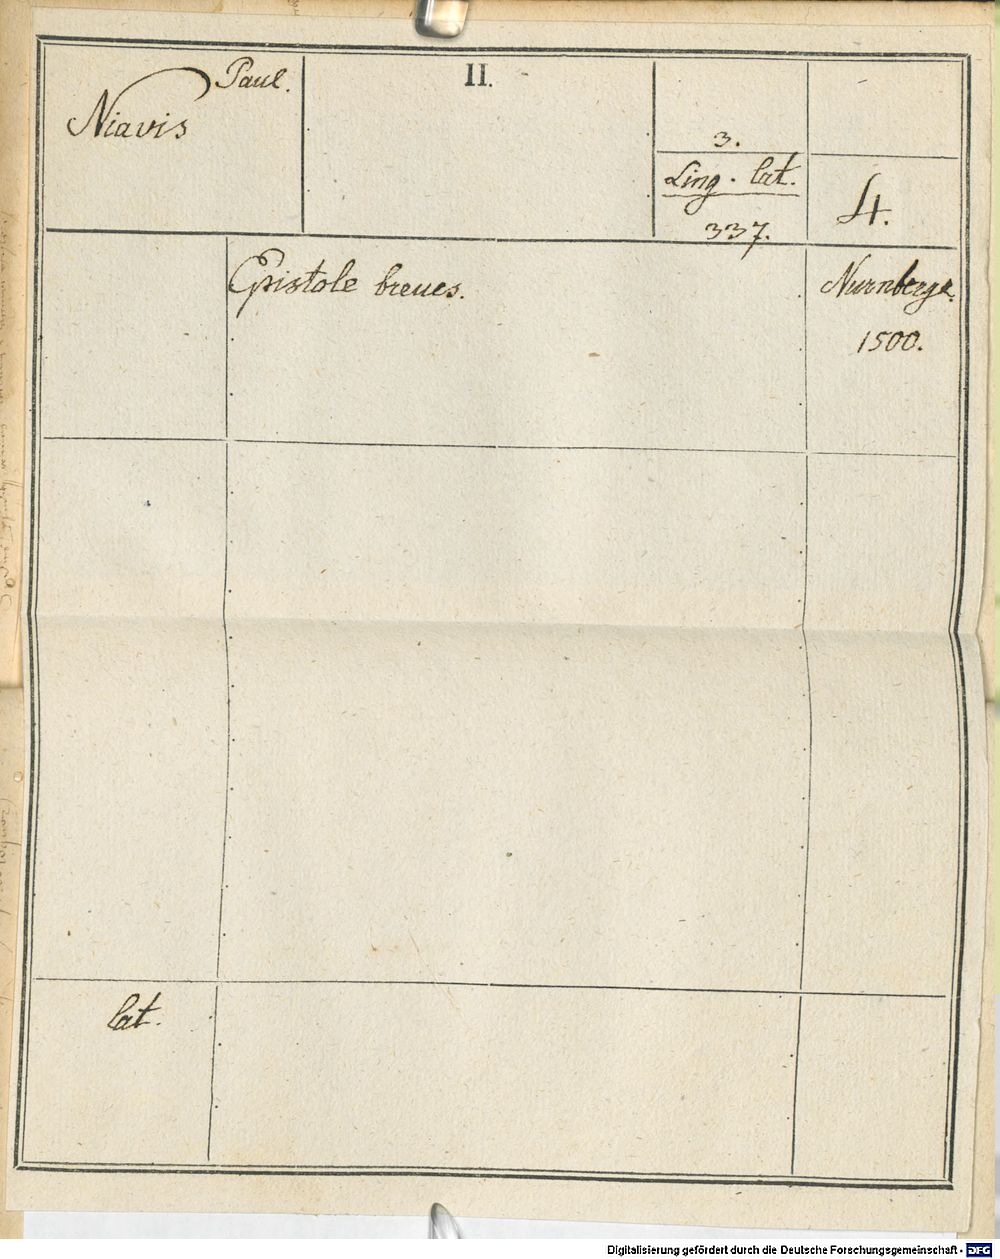 Paul.
Niavis
II.
3.
Ling. lat.
337.
4.
Epistole breues.
Nurnberge.
1500.
lat.
Digitalisierung gefördert durch die Deutsche Forschungsgemeinschaft - DFG